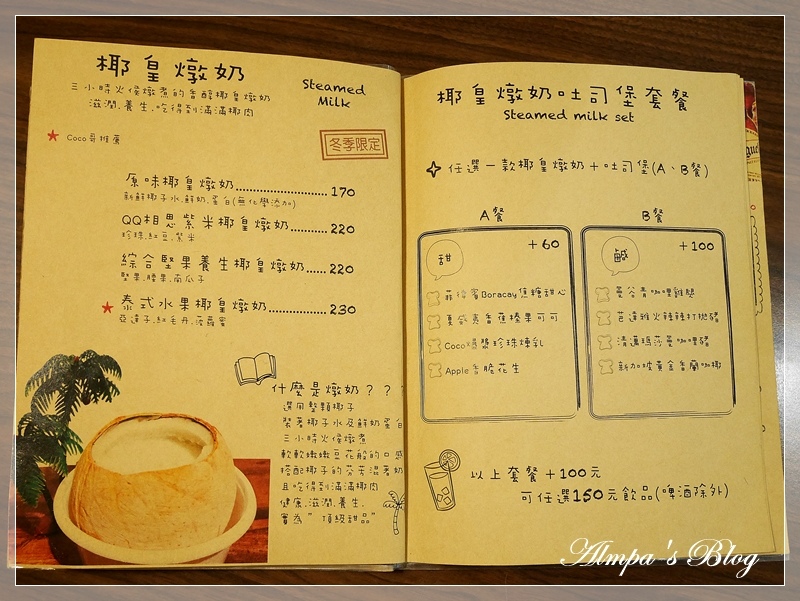 椰皇燉奶
Steamed
Milk
三小時火侯燉煮的香醇椰皇燉奶
滋潤.養生.吃得到滿滿椰肉
Coco哥推薦
冬季限定
原味椰皇燉奶......................170
新鮮椰子水.鮮奶.蛋白(無化學添加)
QQ相思紫米椰皇燉奶.........220
珍珠.紅豆.紫米
綜合堅果養生椰皇燉奶......220
堅果.腰果.南瓜子
泰式水果椰皇燉奶...............230
亞達子.紅毛丹.菠蘿蜜
什麼是燉奶???
選用整顆椰子
緊著椰子水及鮮奶蛋白
三小時火侯燉煮
軟軟嫩嫩豆花般的口感
搭配椰子的芬芳混著奶
且吃得到滿滿椰肉
健康.滋潤.養生.
實為"頂級甜品"
椰皇燉奶吐司堡套餐
Steamed milk set
任選一款椰皇燉奶+吐司堡(A、B餐)
A餐
甜
+60
菲律賓Boracay焦糖甜心
夏威夷香蕉榛果可可
Coco爆漿珍珠煉乳
Apple香脆花生
B餐
鹹
+100
曼谷青咖哩雞腿
芭達雅火辣辣打拋豬
清邁瑪莎曼咖哩豬
新加坡黃金香蘭咖椰
以上套餐+100元
可任選150元飲品(啤酒除外)
Almpa's Blog